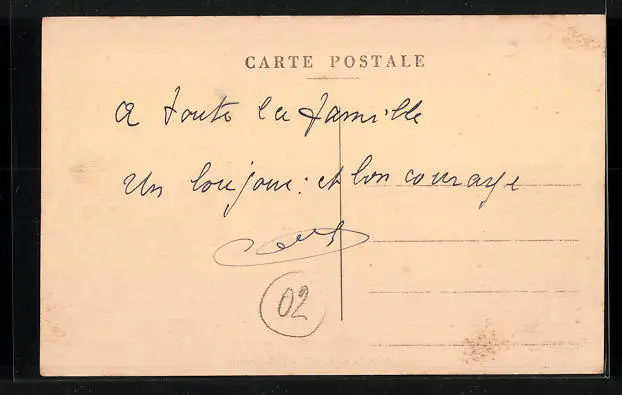 CARTE POSTALE
a toute la famille
un bonjour et bon courage
02